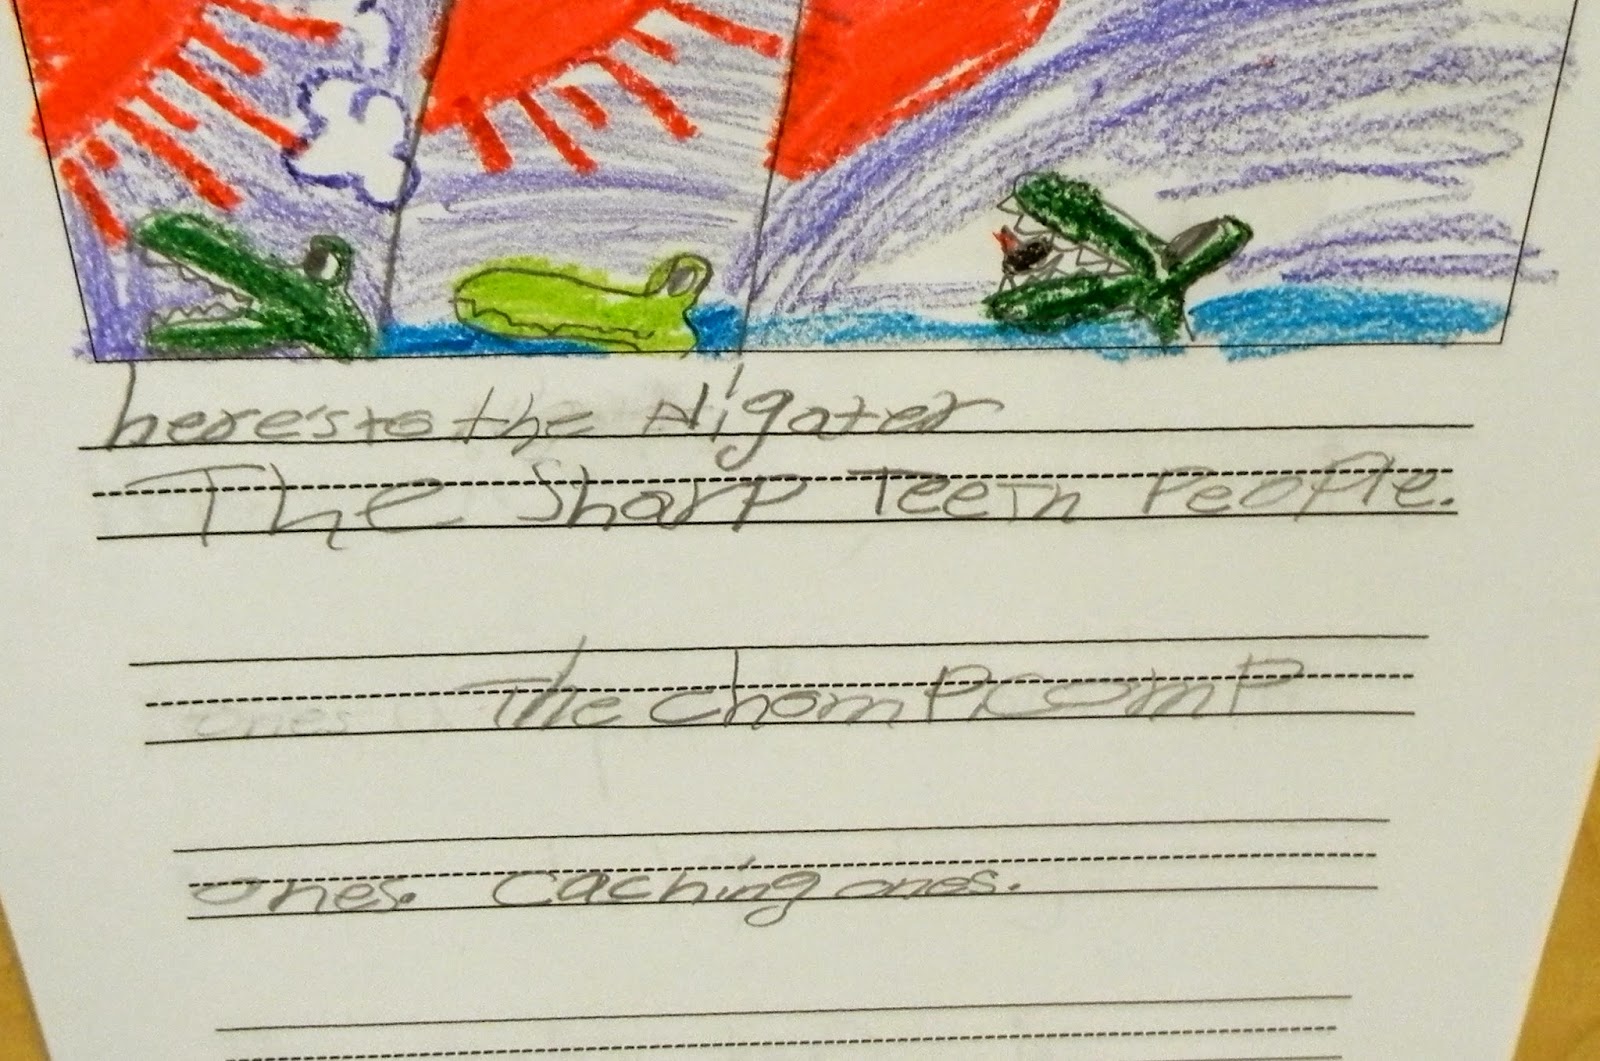 here's to the Aligater
The Sharp Teeth People.
The chompcomp
ones. Caching ones.